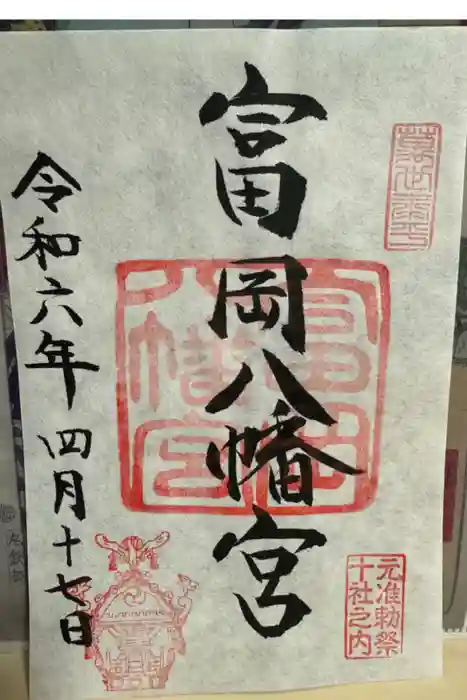 富岡八幡宮
令和六年四月十七日
富岡八幡宮
元准勅祭
十社之内